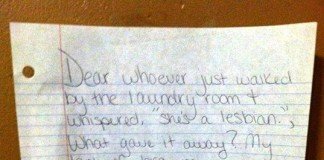 Dear whoever just walked
by the laundry room &
whispered, "she's a lesbian.",
What gave it away? My